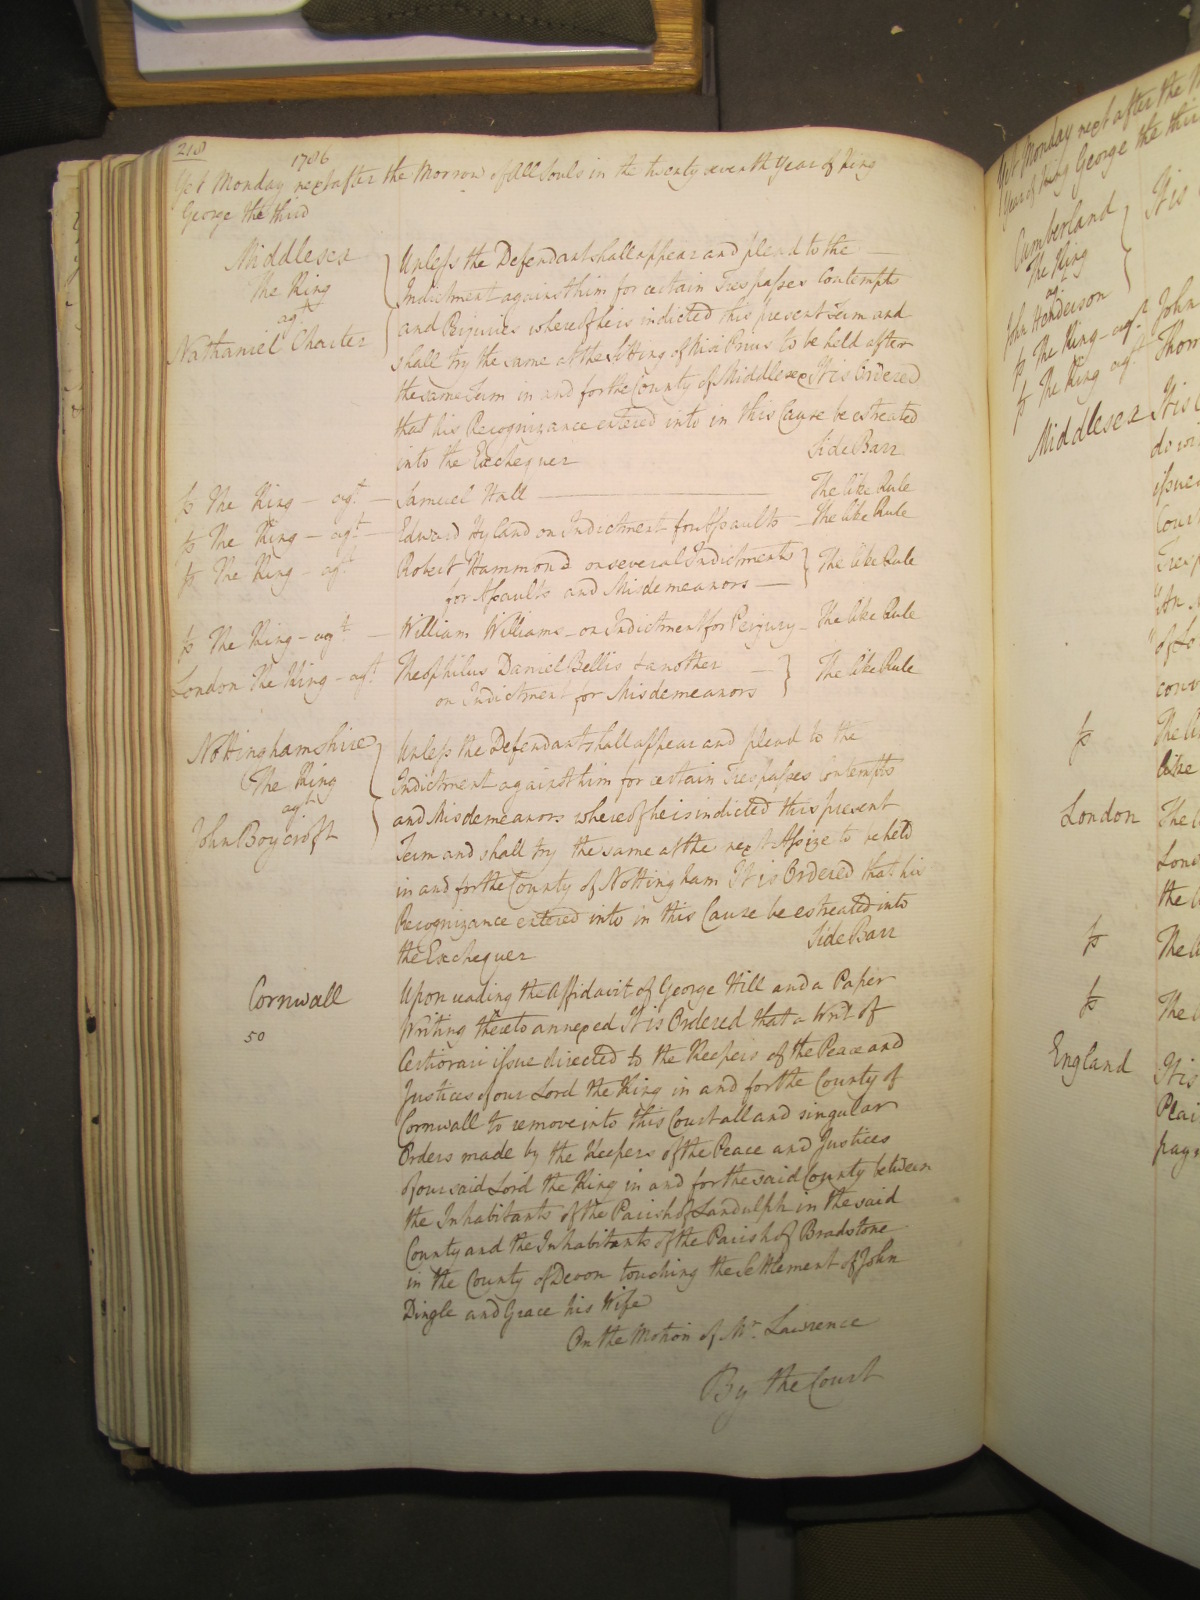 218
1786
Yet Monday next after the Morrow of All Souls in the twenty seventh Year of King
George the third
Middlesex
The King
agt
Nathaniel Charter
Unless the Defendant shall appear and plead to the
Indictment against him for certain Trespasses Contempts
and Perjuries whereof he is indicted this present Term and
shall try the same at the Sitting of Nisi Prius to be held after
the same Term in and for the County of Middlesex It is Ordered
that his Recognizance entered into in this Cause be estreated
into the Exchequer Side Barr
p The King - agt - Samuel Hall - The like Rule
p The King - agt - Edward Hyland on Indictment for Assaults - The like Rule
p The King - agt Robert Hammond on several Indictments
for Assaults and Misdemeanors - The like Rule
p The King - agt - William Williams - on Indictment for Perjury - The like Rule
London The King - agt Theophilus Daniel Bellis & another -
on Indictment for Misdemeanors The like Rule
Nottinghamshire
The King
agt
John Boycroft
Unless the Defendant shall appear and plead to the
Indictment against him for certain Trespasses Contempts
and Misdemeanors whereof he is indicted this present
Term and shall try the same at the next Assize to be held
in and for the County of Nottingham It is Ordered that his
Recognizance entered into in this Cause be estreated into
the Exchequer Side Barr
Cornwall
50
Upon reading the Affidavit of George Hill and a Paper
Writing thereto annexed It is Ordered that a Writ of
Certiorari issue directed to the Keepers of the Peace and
Justices of our Lord the King in and for the County of
Cornwall to remove into this Court all and singular
Orders made by the Keepers of the Peace and Justices
of our said Lord the King in and for the said County between
the Inhabitants of the Parish of Landulph in the said
County and the Inhabitants of the Parish of Bradstone
in the County of Devon touching the Settlement of John
Dingle and Grace his Wife
On the Motion of Mr. Lawrence
By the Court
Yet Monday next after the
Year of King George the thir
Cumberland
The King
agt
John Henderson
It is
p The King - agt John
p The King agt Thom
Middlesex It is
do
issue
Cour
Tres
of Lo
conv
p The
like
London The
Lond
the
p The
p The
England It is
Plai
pay